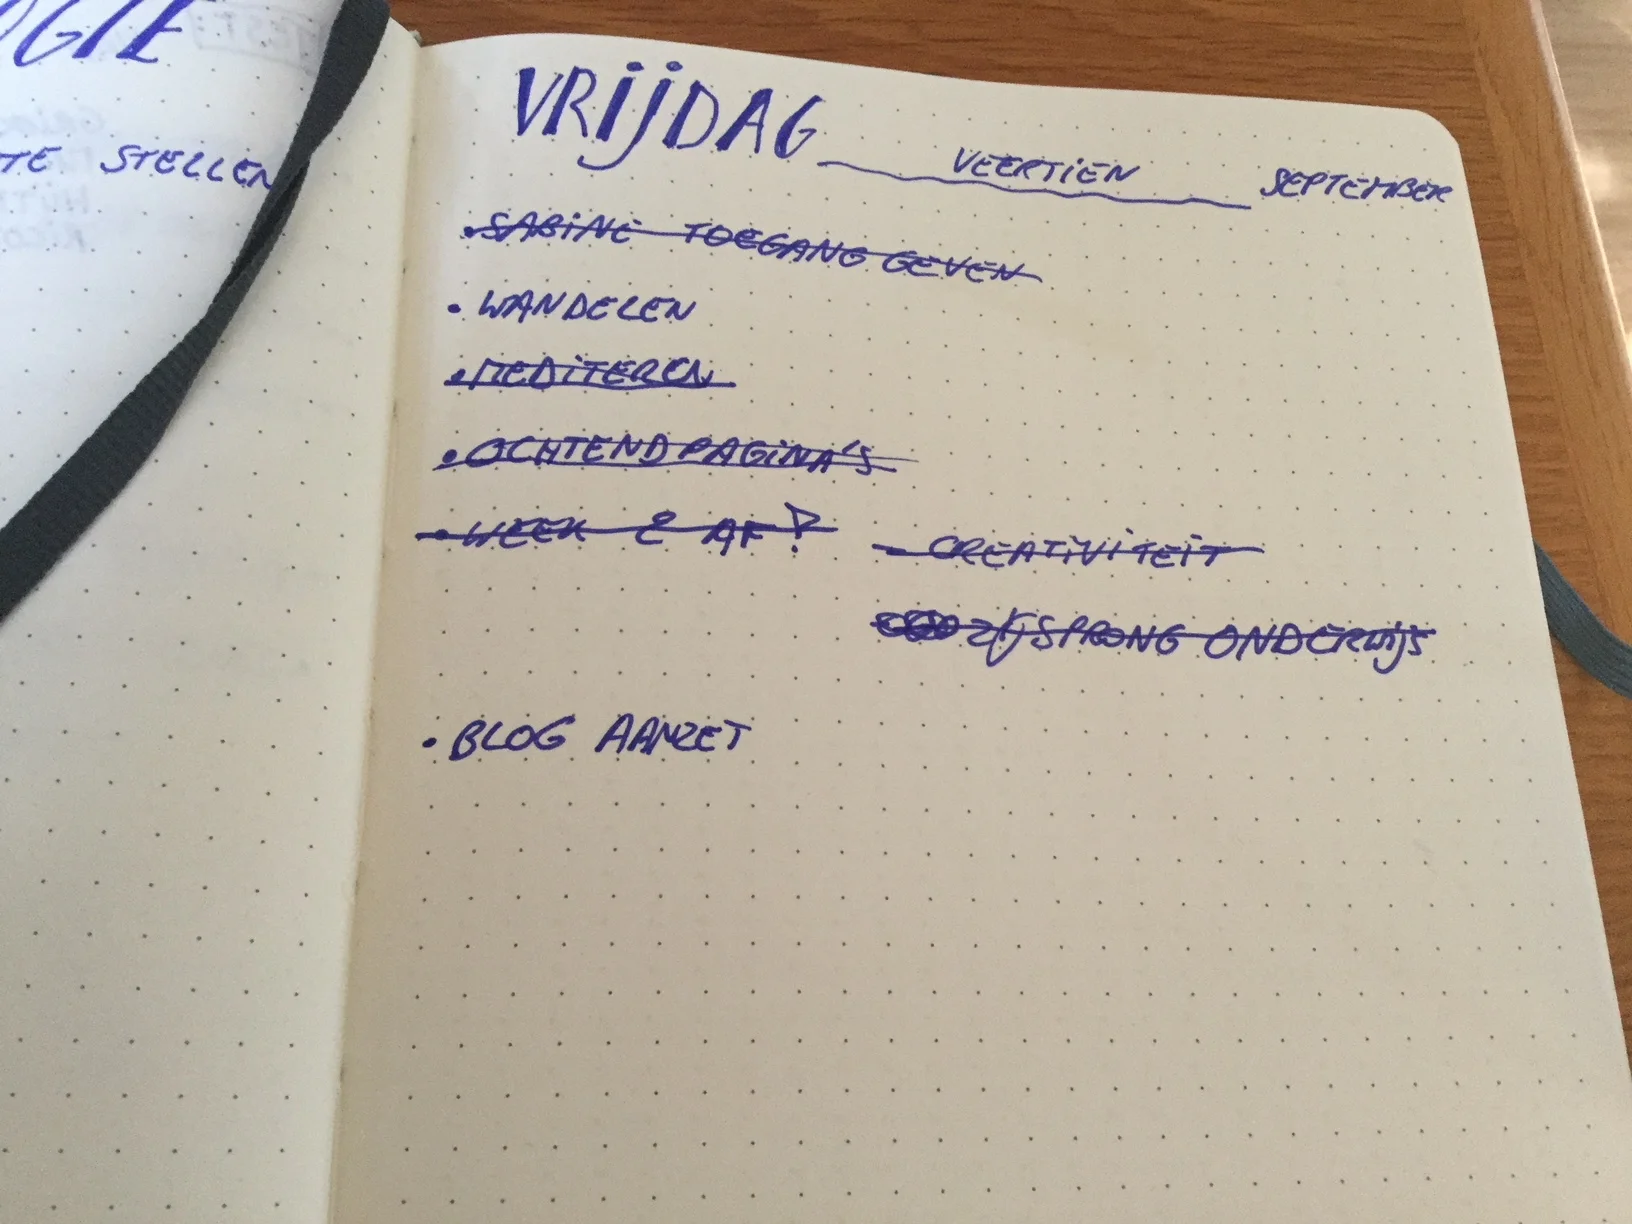 TE STELLEN
VRIJDAG VEERTIEN SEPTEMBER
• SABINE TOEGANG GEVEN
• WANDELEN
• MEDITEREN
• OCHTENDPAGINA'S
• WEEK 2 AF? - CREATIVITEIT
ZIJSPRONG ONDERWIJS
• BLOG AANZET